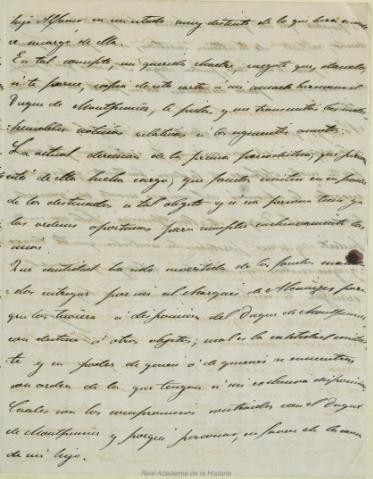 hijo Alfonso en un estado muy distinto de lo que
se encargó de ella.
En tal concepto, mi querido
si te parece, copia de esta carta a mi amado hermano el
Duque de Montpensier, le pidas, y me transmitas las mas
noticias relativas a los siguientes puntos:
La actual direccion de la prensa periodistica, que
de ella hecho cargo; que fondos existen en su poder
de los destinados a tal objeto y si esa persona tiene ya
las ordenes oportunas para cumplir exclusivamente las
mias.
Que cantidad ha sido invertida de los fondos
entregar por mi al Marques de para
que los tuviera a disposicion del Duque de Montpensier
con destino a otros objetos, cual es la cantidad
te y en poder de quien o de quienes se encuentran
con orden de que los tengan a mi exclusiva disposicion.
Cuales son los compromisos contraidos con el Duque
de Montpensier y por que personas, en favor de la causa
de mi hijo.
Real Academia de la Historia